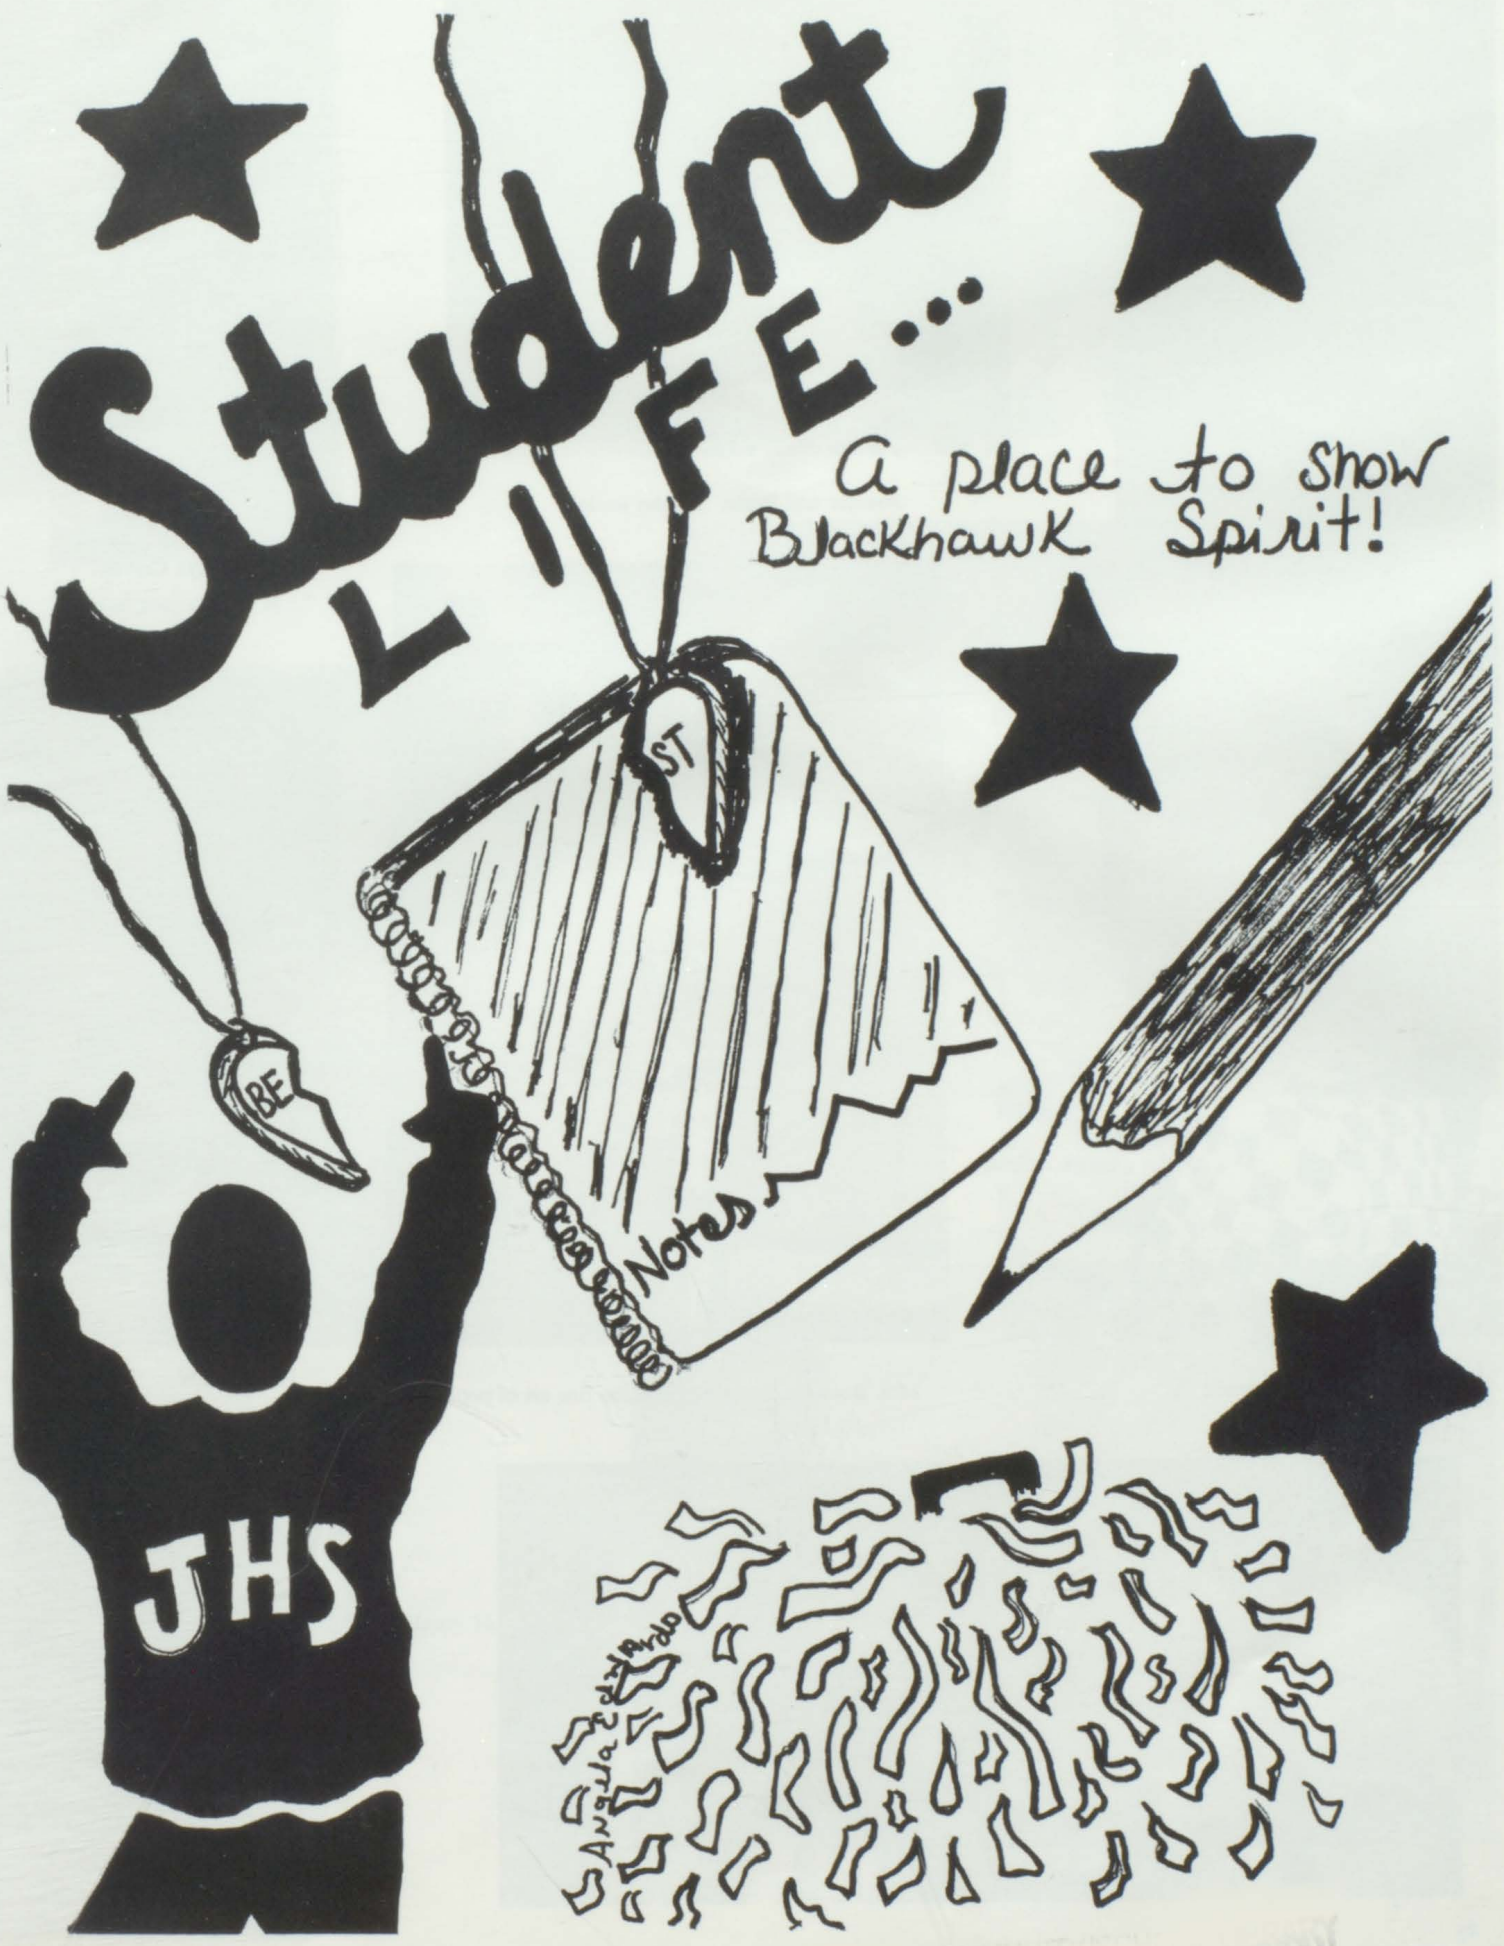 Student
LIFE...
A place to show
Blackhawk Spirit!
ST
BE
Notes
JHS
Angela Edrlardo